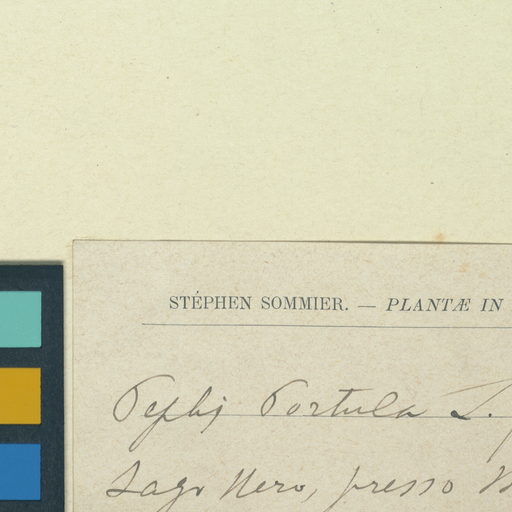 STÉPHEN SOMMIER. — PLANTÆ IN
Peplis Portula L.
Lago Nero, presso